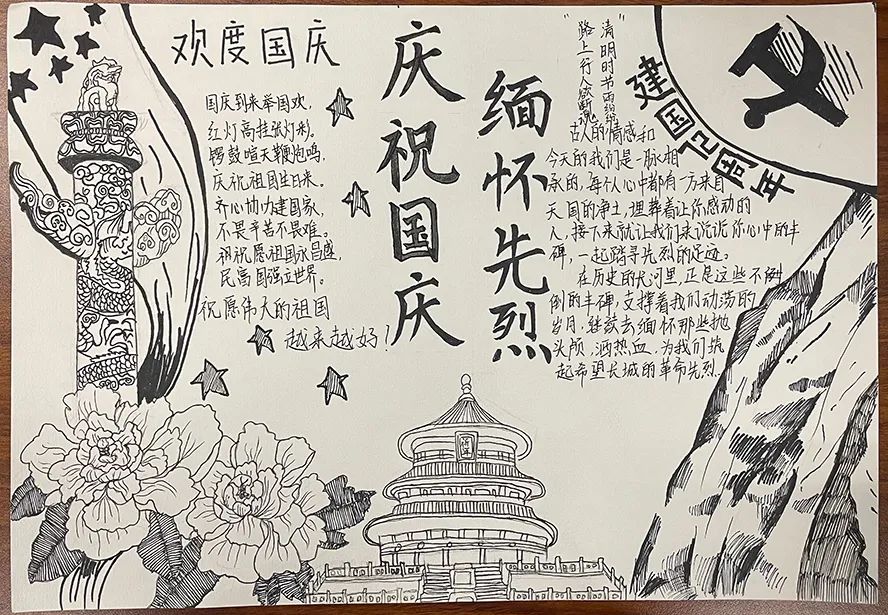 欢度国庆
国庆到来举国欢，
红灯高挂张灯
锣鼓喧天鞭炮鸣，
庆祝祖国生日来。
齐心协力建国家，
不畏辛苦不畏难。
祝愿祖国永昌盛，
民富国强立世界。
祝愿伟大的祖国
越来越好！
庆祝国庆
缅怀先烈
“清明时节雨纷纷
路上行人欲断魂”
古人的情感和
今天的我们是一脉相
承的，每个人心中都有一方来自
天国的净土，埋葬着让你感动的
人，接下来就让我们来说说你心中的丰
碑，一起踏寻先烈的足迹。
在历史的长河里，正是这些不
倒的丰碑，支撑着我们动荡的
岁月，继续去缅怀那些抛
头颅，洒热血，为我们筑
起希望长城的革命先烈.
建国72周年